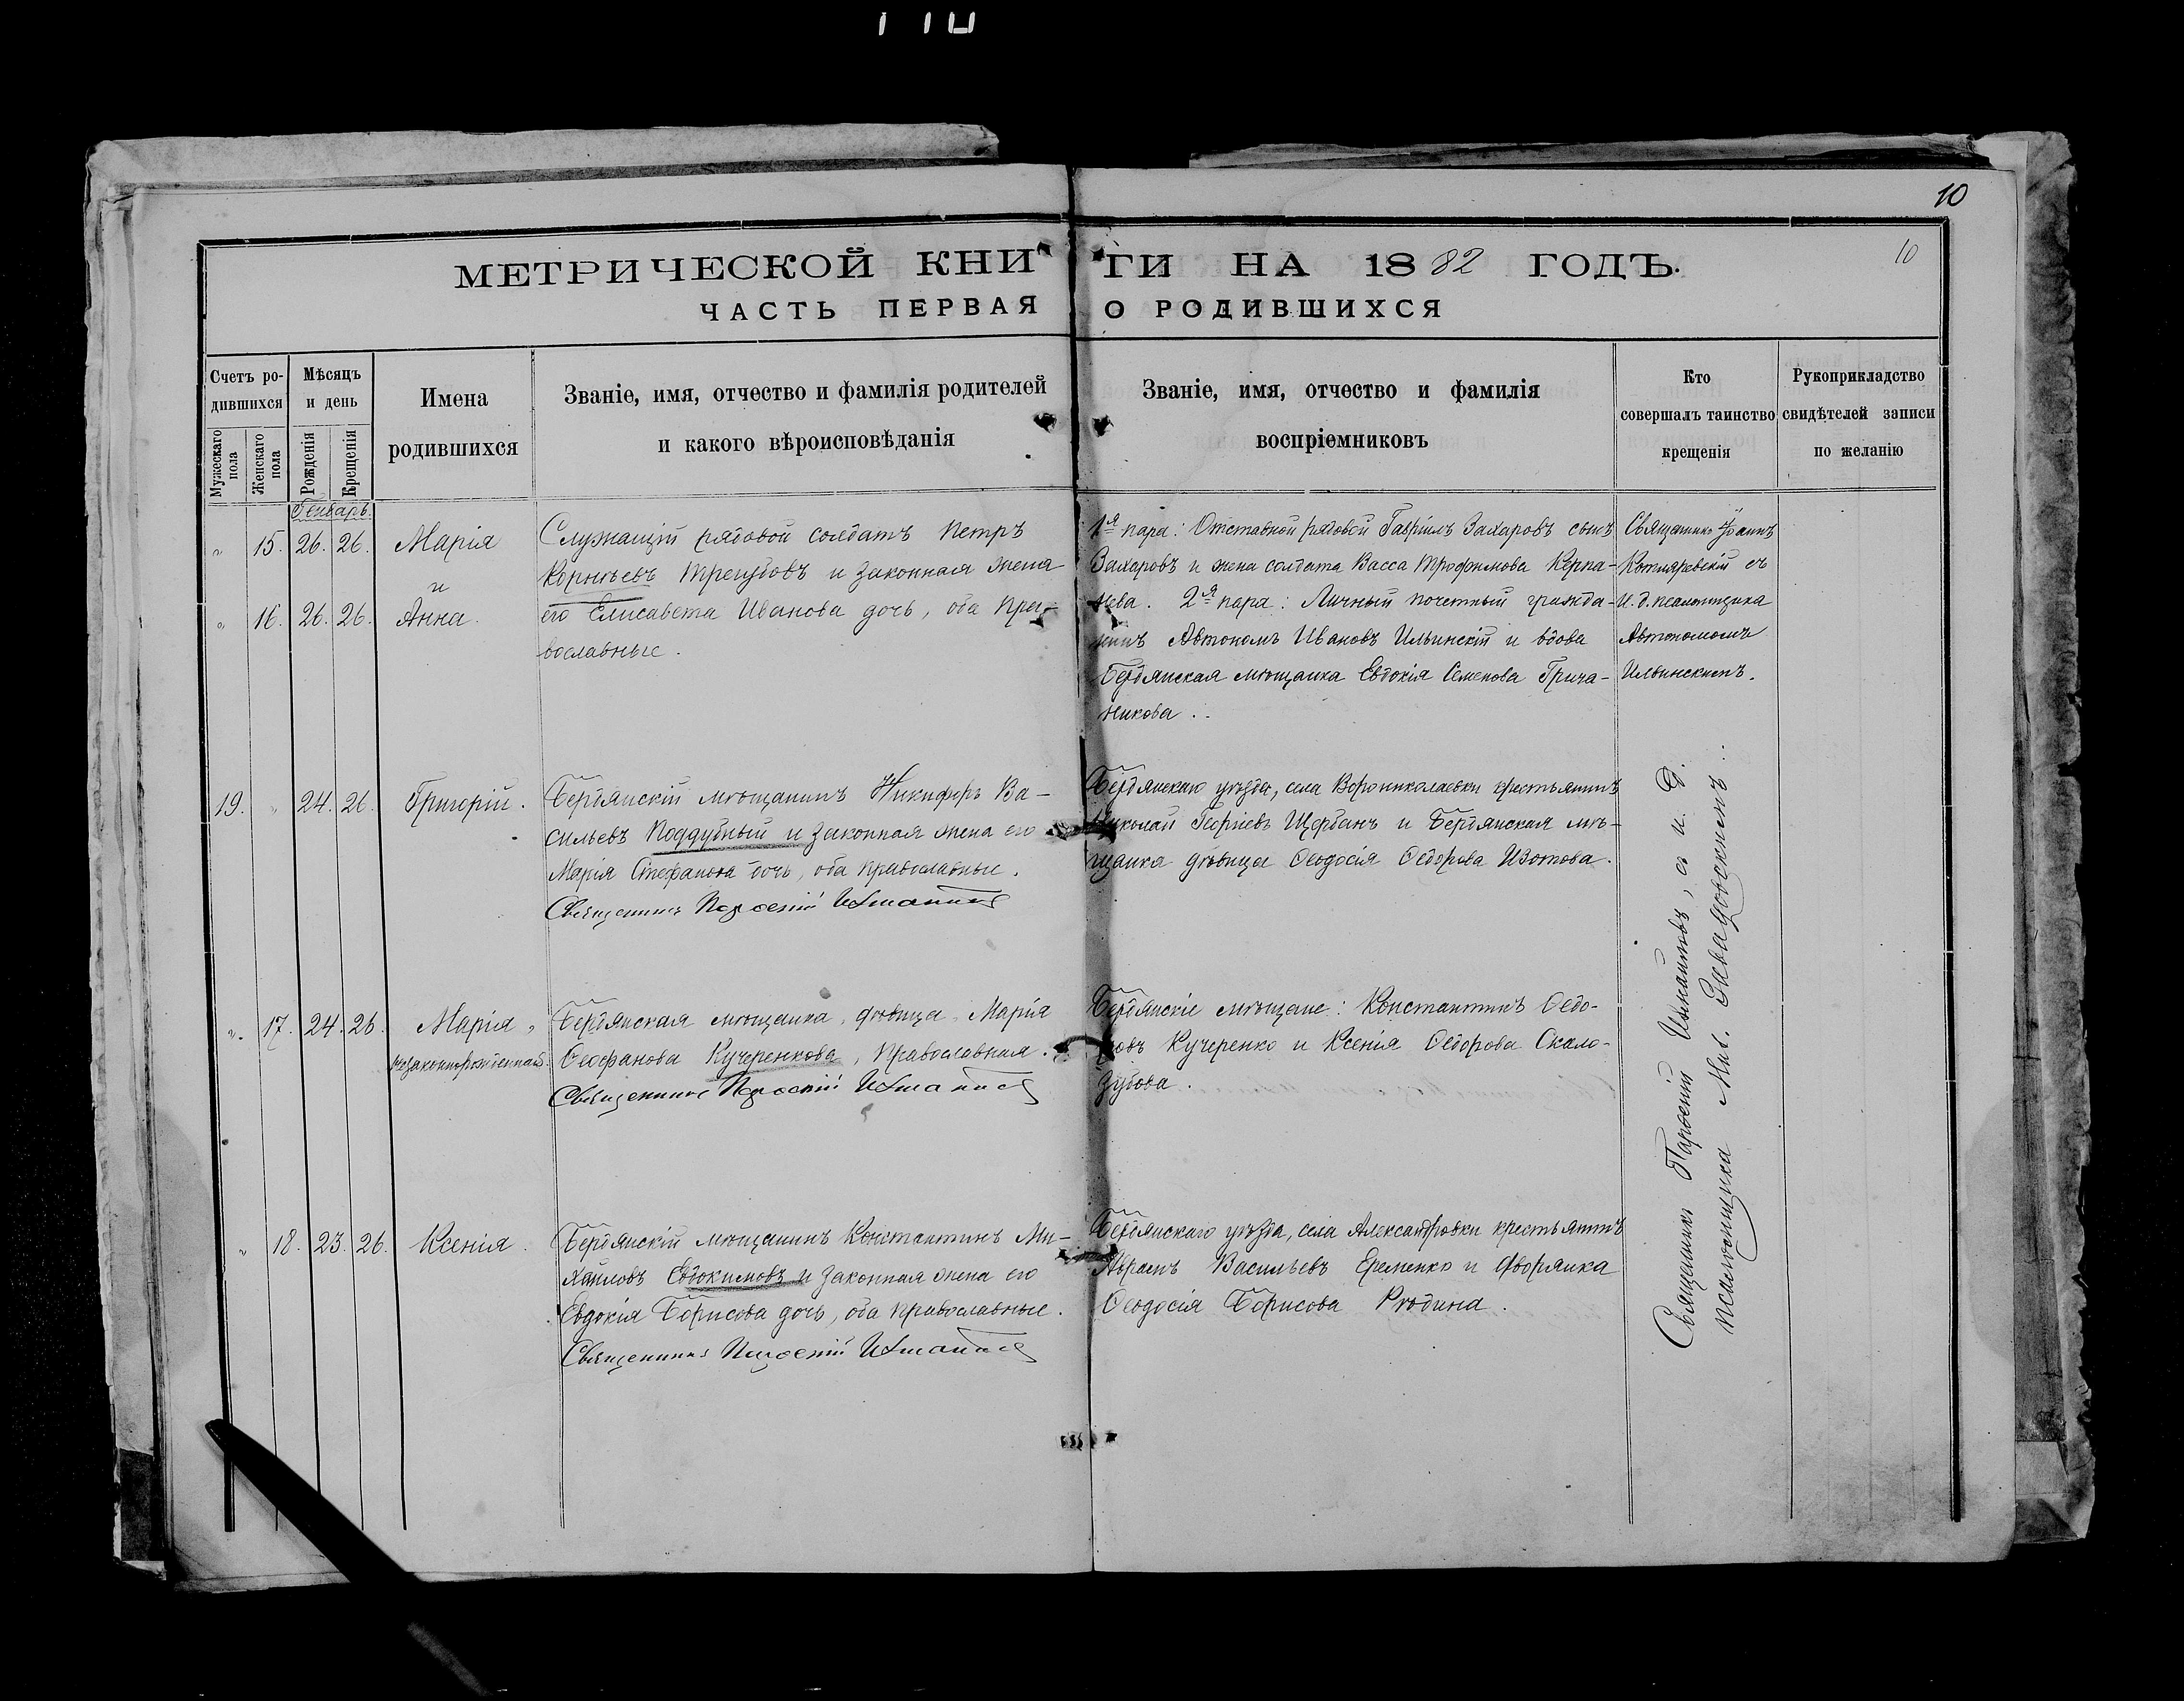 10
10
МЕТРИЧЕСКОЙ КНИГИ НА 1882 ГОДЪ.
ЧАСТЬ ПЕРВАЯ О РОДИВШИХСЯ
Счетъ ро-
дившихся
Мужескаго пола
Женскаго пола
Мѣсяцъ
и день
Рожденія
Крещенія
Имена
родившихся
Званіе, имя, отчество и фамилія родителей
и какого вѣроисповѣданія
Званіе, имя, отчество и фамилія
воспріемниковъ
Кто
совершалъ таинство
крещенія
Рукоприкладство
свидѣтелей записи
по желанію
Генварь.
" 15. 26. 26. Марія
и
" 16. 26. 26. Анна.
Служащій рядовой солдатъ Петръ
Корнѣевъ Трегубовъ и законная жена
его Елисавета Иванова дочь, оба пра-
вославные.
1я пара: Отставной рядовой Гавріилъ Захаровъ сынъ
Захаровъ и жена солдата Васса Трофимова
2я пара: Личный почетный гражда-
нинъ Автономъ Ивановъ Ильинскій и вдова
Бердянская мѣщанка Евдокія Семенова Грича-
никова.
Священникъ Іоаннъ
Котляревскій съ
И. д. псаломщика
Автономомъ
Ильинскимъ.
19. " 24. 26. Григорій.
Бердянскій мѣщанинъ Никифоръ Ва-
сильевъ Поддубный и законная жена его
Марія Стефанова дочь, оба православные.
Священникъ Парѳеній
Бердянскаго уѣзда, села крестьянинъ
Николай Георгіевъ Щербанъ и Бердянская мѣ-
щанка дѣвица Ѳеодосія Ѳедорова Изотова.
". 17. 24. 26. Марія
незаконнорожденная.
Бердянская мѣщанка, дѣвица Марія
Ѳеофанова Кучеренкова, православная.
Священникъ Парѳеній
Бердянскіе мѣщане: Константинъ Ѳедо-
ровъ Кучеренко и Ксенія Ѳедорова Скало-
зубова.
" 18. 23. 26. Ксенія.
Бердянскій мѣщанинъ Константинъ Ми-
хайловъ Евдокимовъ и законная жена его
Евдокія Борисова дочь, оба православные.
Священникъ Парѳеній
Бердянскаго уѣзда, села Александровки крестьянинъ
Абрамъ Васильевъ Еременко и дворянка
Ѳеодосія Борисова Рѣдина.
Священникъ Парѳеній с и. д.
псаломщика Мих. Завадовскимъ.